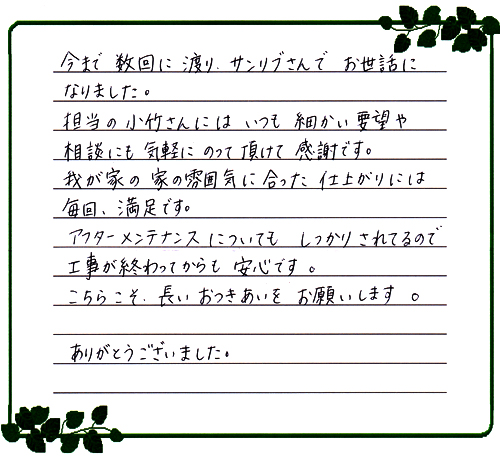 今まで 数回に 渡り、サンリブさんで お世話に
なりました。
担当の 小竹さんには いつも 細かい 要望や
相談にも 気軽に のって 頂けて 感謝です。
我が家の 家の雰囲気に 合った 仕上がりには
毎回、満足です。
アフターメンテナンスについても しっかりされてるので
工事が終わってからも 安心です。
こちらこそ、長い おつきあいを お願いします。
ありがとうございました。